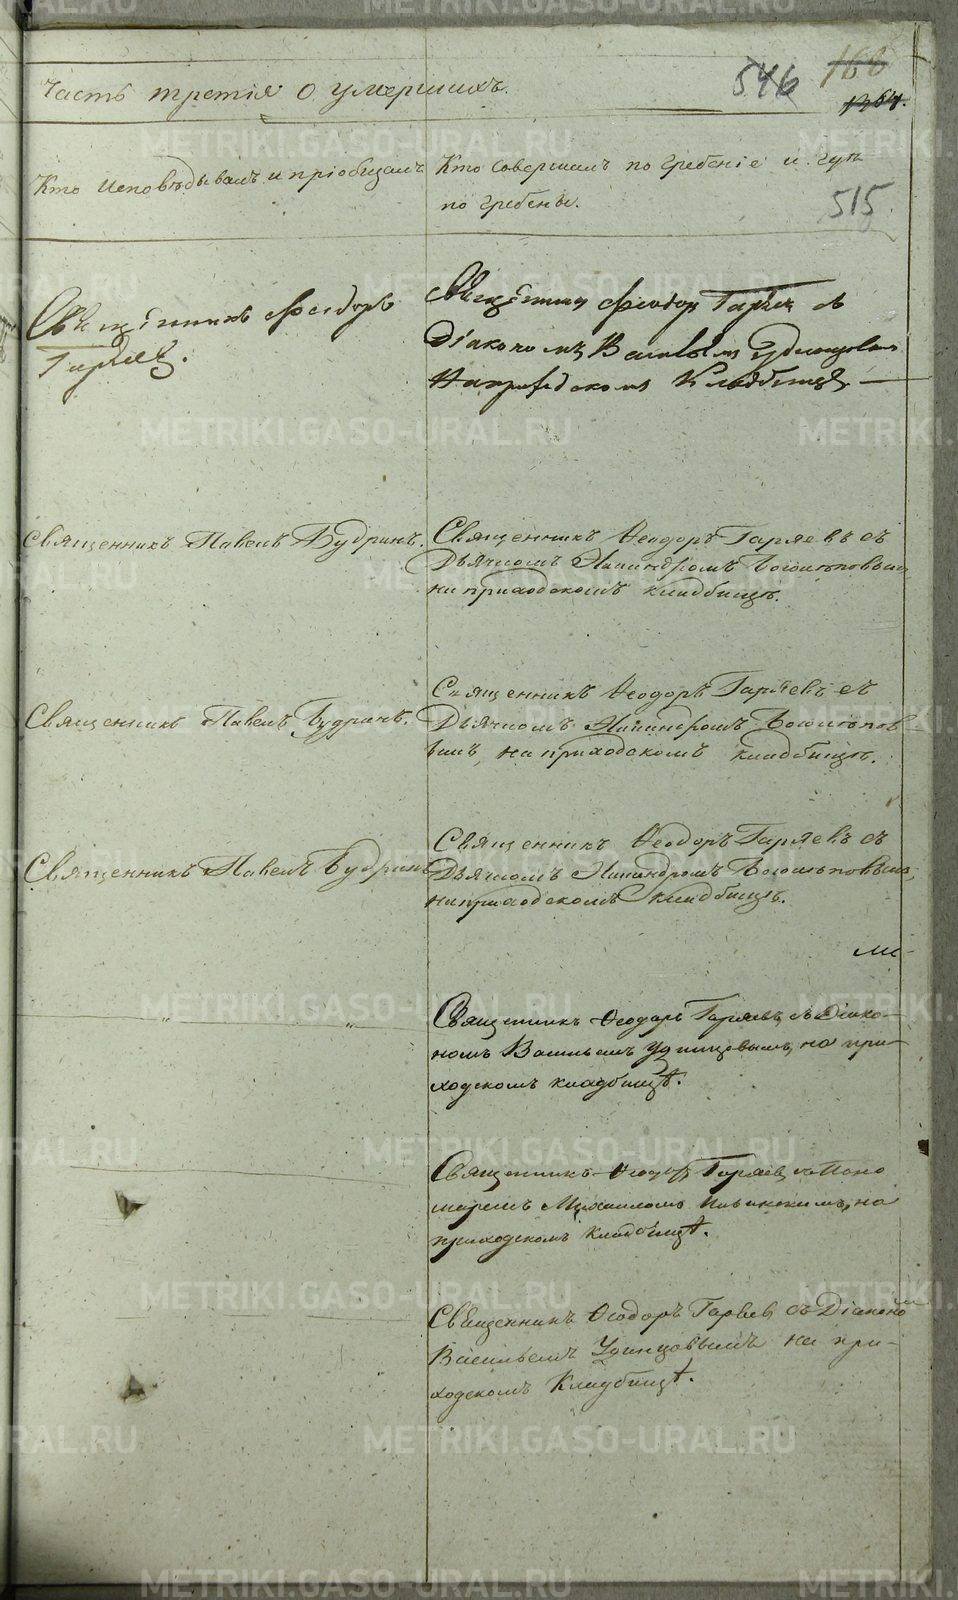 Часть третія о умершихъ.
546
168
1364.
Кто исповѣдывалъ и пріобщалъ
Кто совершалъ погребеніе и гдѣ
погребены.
515
Священникъ Феодоръ
Гаряевъ.
Священникъ Феодор Гаряев съ
Діакономъ Васильемъ Удинцовымъ
На приходскомъ Кладбищѣ
Священникъ Павелъ Будринъ.
Священникъ Ѳеодоръ Гаряевъ съ
Дьячкомъ Никандромъ
на приходскомъ кладбищѣ.
Священникъ Павелъ Будринъ.
Священникъ Ѳеодоръ Гаряевъ съ
Дьячкомъ Никандромъ
вымъ, на приходскомъ кладбищѣ.
Священникъ Павелъ Будринъ
Священникъ Ѳеодоръ Гаряевъ съ
Дьячкомъ Никандромъ
на приходскомъ кладбищѣ.
Священникъ Ѳеодоръ Гаряевъ, съ Діако-
номъ Васильемъ Удинцовымъ, на при-
ходскомъ кладбищѣ.
Священникъ Ѳеодоръ Гаряевъ съ Поно
маремъ Михаиломъ на
приходскомъ кладбищѣ.
Священникъ Ѳеодоръ Гаряевъ съ Діакономъ
Васильемъ Удинцовымъ на при-
ходскомъ Кладбищѣ.
METRIKI.GASO-URAL.RU